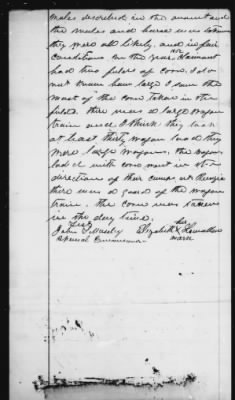 males described in the account and
the mules and horse was taken
they were all likely, and in fair
condition in the year. Claimant
had two fields of corn. I do
not know how large I saw the
most of the corn taken in the
field. there was a large wagon
train used. I think they had
at least thirty wagons and they
were large wagons. the wagons
laden with corn went in the
direction of their camps at
there was a guard of the wagon
train. The corn was taken
in the day time.
her
Elizabeth X
mark
Special Commissioner